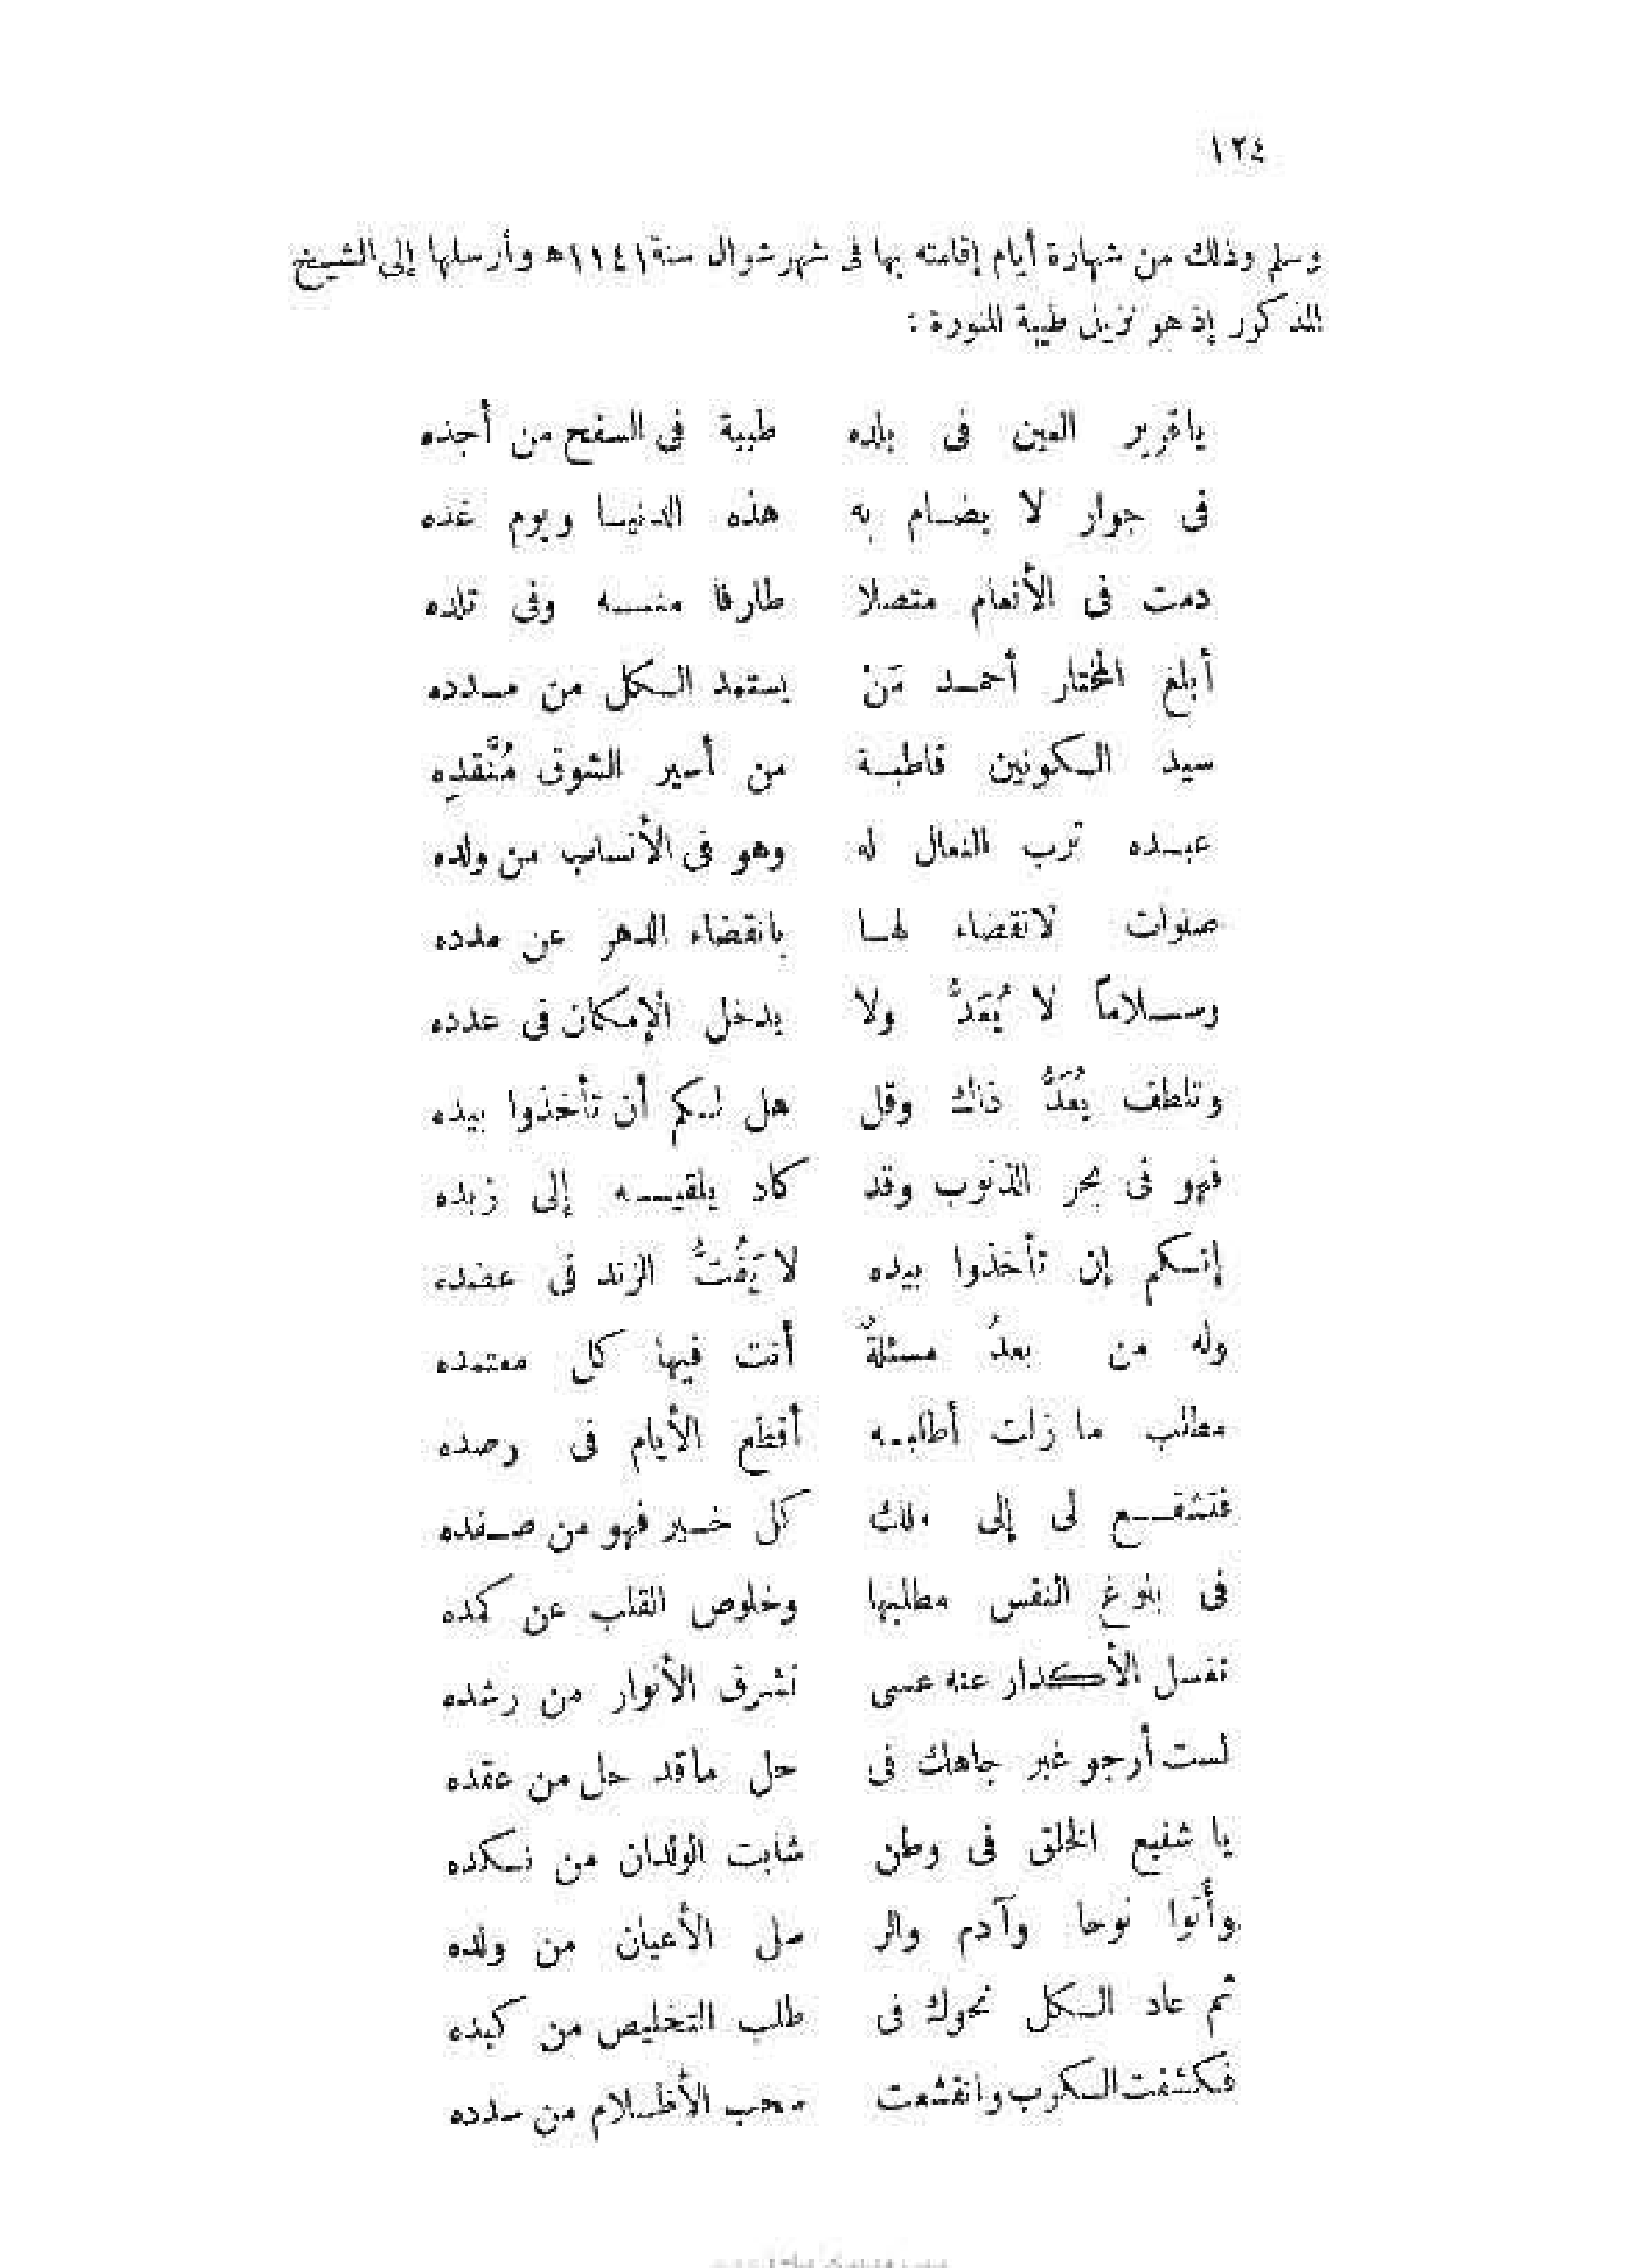 ١٢٤
وسلم وذلك من شهارة أيام إقامته بها فى شهر شوال سنة ١١٤١ه وأرسلها إلى الشيخ
المذكور إذ هو نزيل طيبة المنورة :
ياقرير العين فى بلده طيبة فى السفح من أجده
فى جوار لا يضام به هذه الدنيا ويوم غده
دمت فى الأنعام متصلا طارفا منه وفى تلده
أبلغ المختار أحمد مَنْ يستمد الكل من مدده
سيد الكونين قاطبة من أسير الشوق مُتَّقدِه
عبده ترب النعال له وهو فى الأنساب من ولده
صلوات لانقضاء لها بانقضاء الدهر عن مدده
وسلاماً لا يُعَدُّ ولا يدخل الإمكان فى عدده
وتلطف بُعَدَُّ ذاك وقل هل لكم أن تأخذوا بيده
فهو فى بحر الذنوب وقد كاد يلقيه إلى زبده
إنكم إن تأخذوا بيده لا يَفُتُّ الزند فى عضده
وله من بعدُ مسئلةٌ أنت فيها كل معتمده
مطلب ما زلت أطلبه أقطع الأيام فى رصده
فتشفع لى إلى ملك كل خير فهو من صفده
فى بلوغ النفس مطلبها وخلوص القلب عن كمده
نغسل الأكدار عنه عسى تشرق الأنوار من رشده
لست أرجو غير جاهك فى حل ماقد حل من عقده
يا شفيع الخلق فى وطن شابت الولدان من نكده
وأتوا نوحا وآدم والر سل الأعيان من ولده
ثم عاد الكل نحوك فى طلب التخليص من كبده
فكشفت الكرب وانقشعت سحب الأظلام من سدده